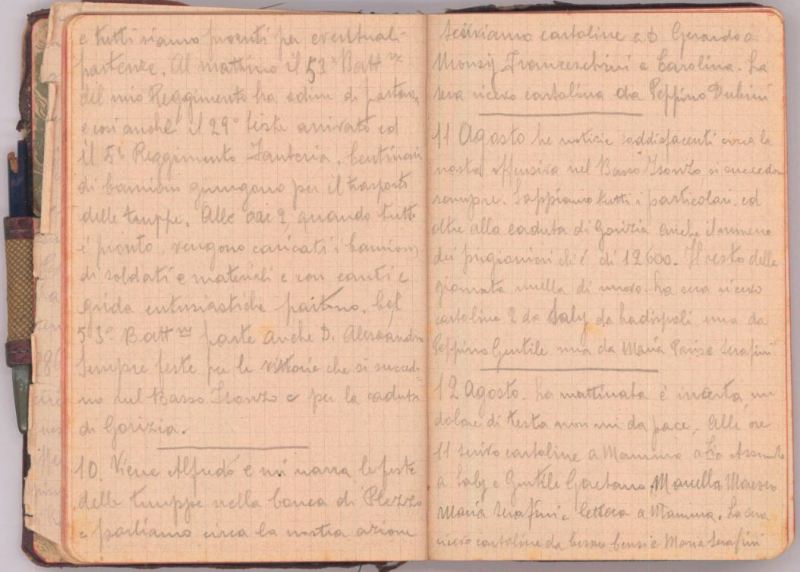 e tutti siamo pronti per eventuali
partenze. Al mattino il 53° Batt.ne
del mio Reggimento ha ordine di partenza
e così anche il 29° testè arrivato ed
il 5° Reggimento Fanteria. Centinaia
di camions giungono per il trasporto
delle truppe. Alle ore 2 quando tutto
è pronto vengono caricati i camions
di soldati e materiali e con canti e
grida entusiastiche partono. Col
53° Batt.ne parte anche D. Alessandro
Sempre feste per le vittorie che si succedo=
no nel Basso Isonzo e per la caduta
di Gorizia.
10. Viene Alfredo e mi narra le feste
delle truppe nella conca di Plezzo
e parliamo circa la nostra azione
Scriviamo cartoline a Gerardo a
Franceschini e Carolina. La
sera ricevo cartolina da Peppino
11 Agosto Le notizie soddisfacenti circa la
nostra offensiva nel Basso Isonzo si succedono
sempre. Sappiamo tutti i particolari ed
oltre alla caduta di Gorizia anche il numero
dei prigionieri di 12600. Il resto della
giornata nulla di nuovo. La sera ricevo
cartoline 2 da Saly da Ladispoli una da
Peppino Gentile una da Maria Serafini
12 Agosto. La mattinata è incerta, un
dolore di testa non mi da pace. Alle ore
11 scrivo cartoline a Mamma a Zio
a Saly e Gentile Gaetano Marcella
Maria Serafini e lettera a Mamma. La sera
ricevo cartoline da e Maria Serafini